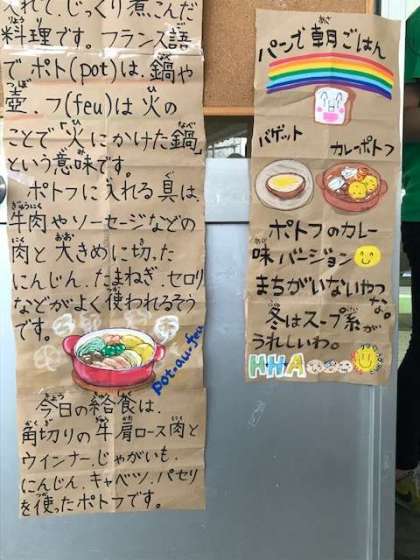 入れて、じっくり煮こんだ
料理です。フランス語
で、ポト(pot)は、鍋や
壺、フ(feu)は火の
ことで「火にかけた鍋」
という意味です。
ポトフに入れる具は、
牛肉やソーセージなどの
肉と大きめに切った
にんじん、たまねぎ、セロリ
などがよく使われるそう
です。
pot-au-feu
今日の給食は、
角切りの牛肩ロース肉と
ウインナー、じゃがいも、
にんじん、キャベツ、パセリ
を使ったポトフです。
パンで朝ごはん
バゲット
カレーポトフ
ポトフのカレー
味バージョン
まちがいないやつ
な。
冬はスープ系が
うれしいわ。
HHA